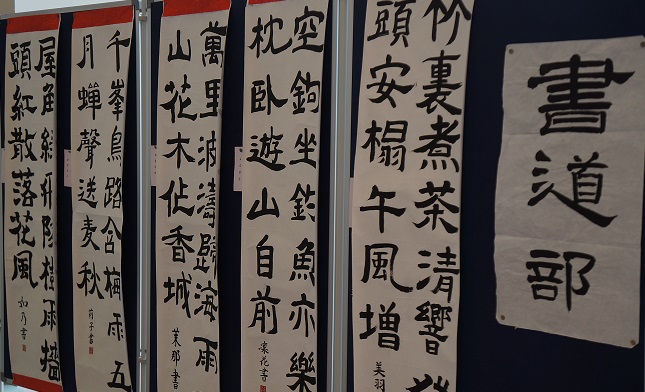 書道部
竹裏煮茶清響
頭安榻午風増
美羽
空鉤坐釣魚亦樂
枕臥遊山自前
凜花書
萬里波濤歸海雨
山花木作香城
茉那書
千峯鳥路含梅雨五
月蟬聲送麦秋
莉子書
屋角緑陰樹雨墻
頭紅散落花風
如乃書